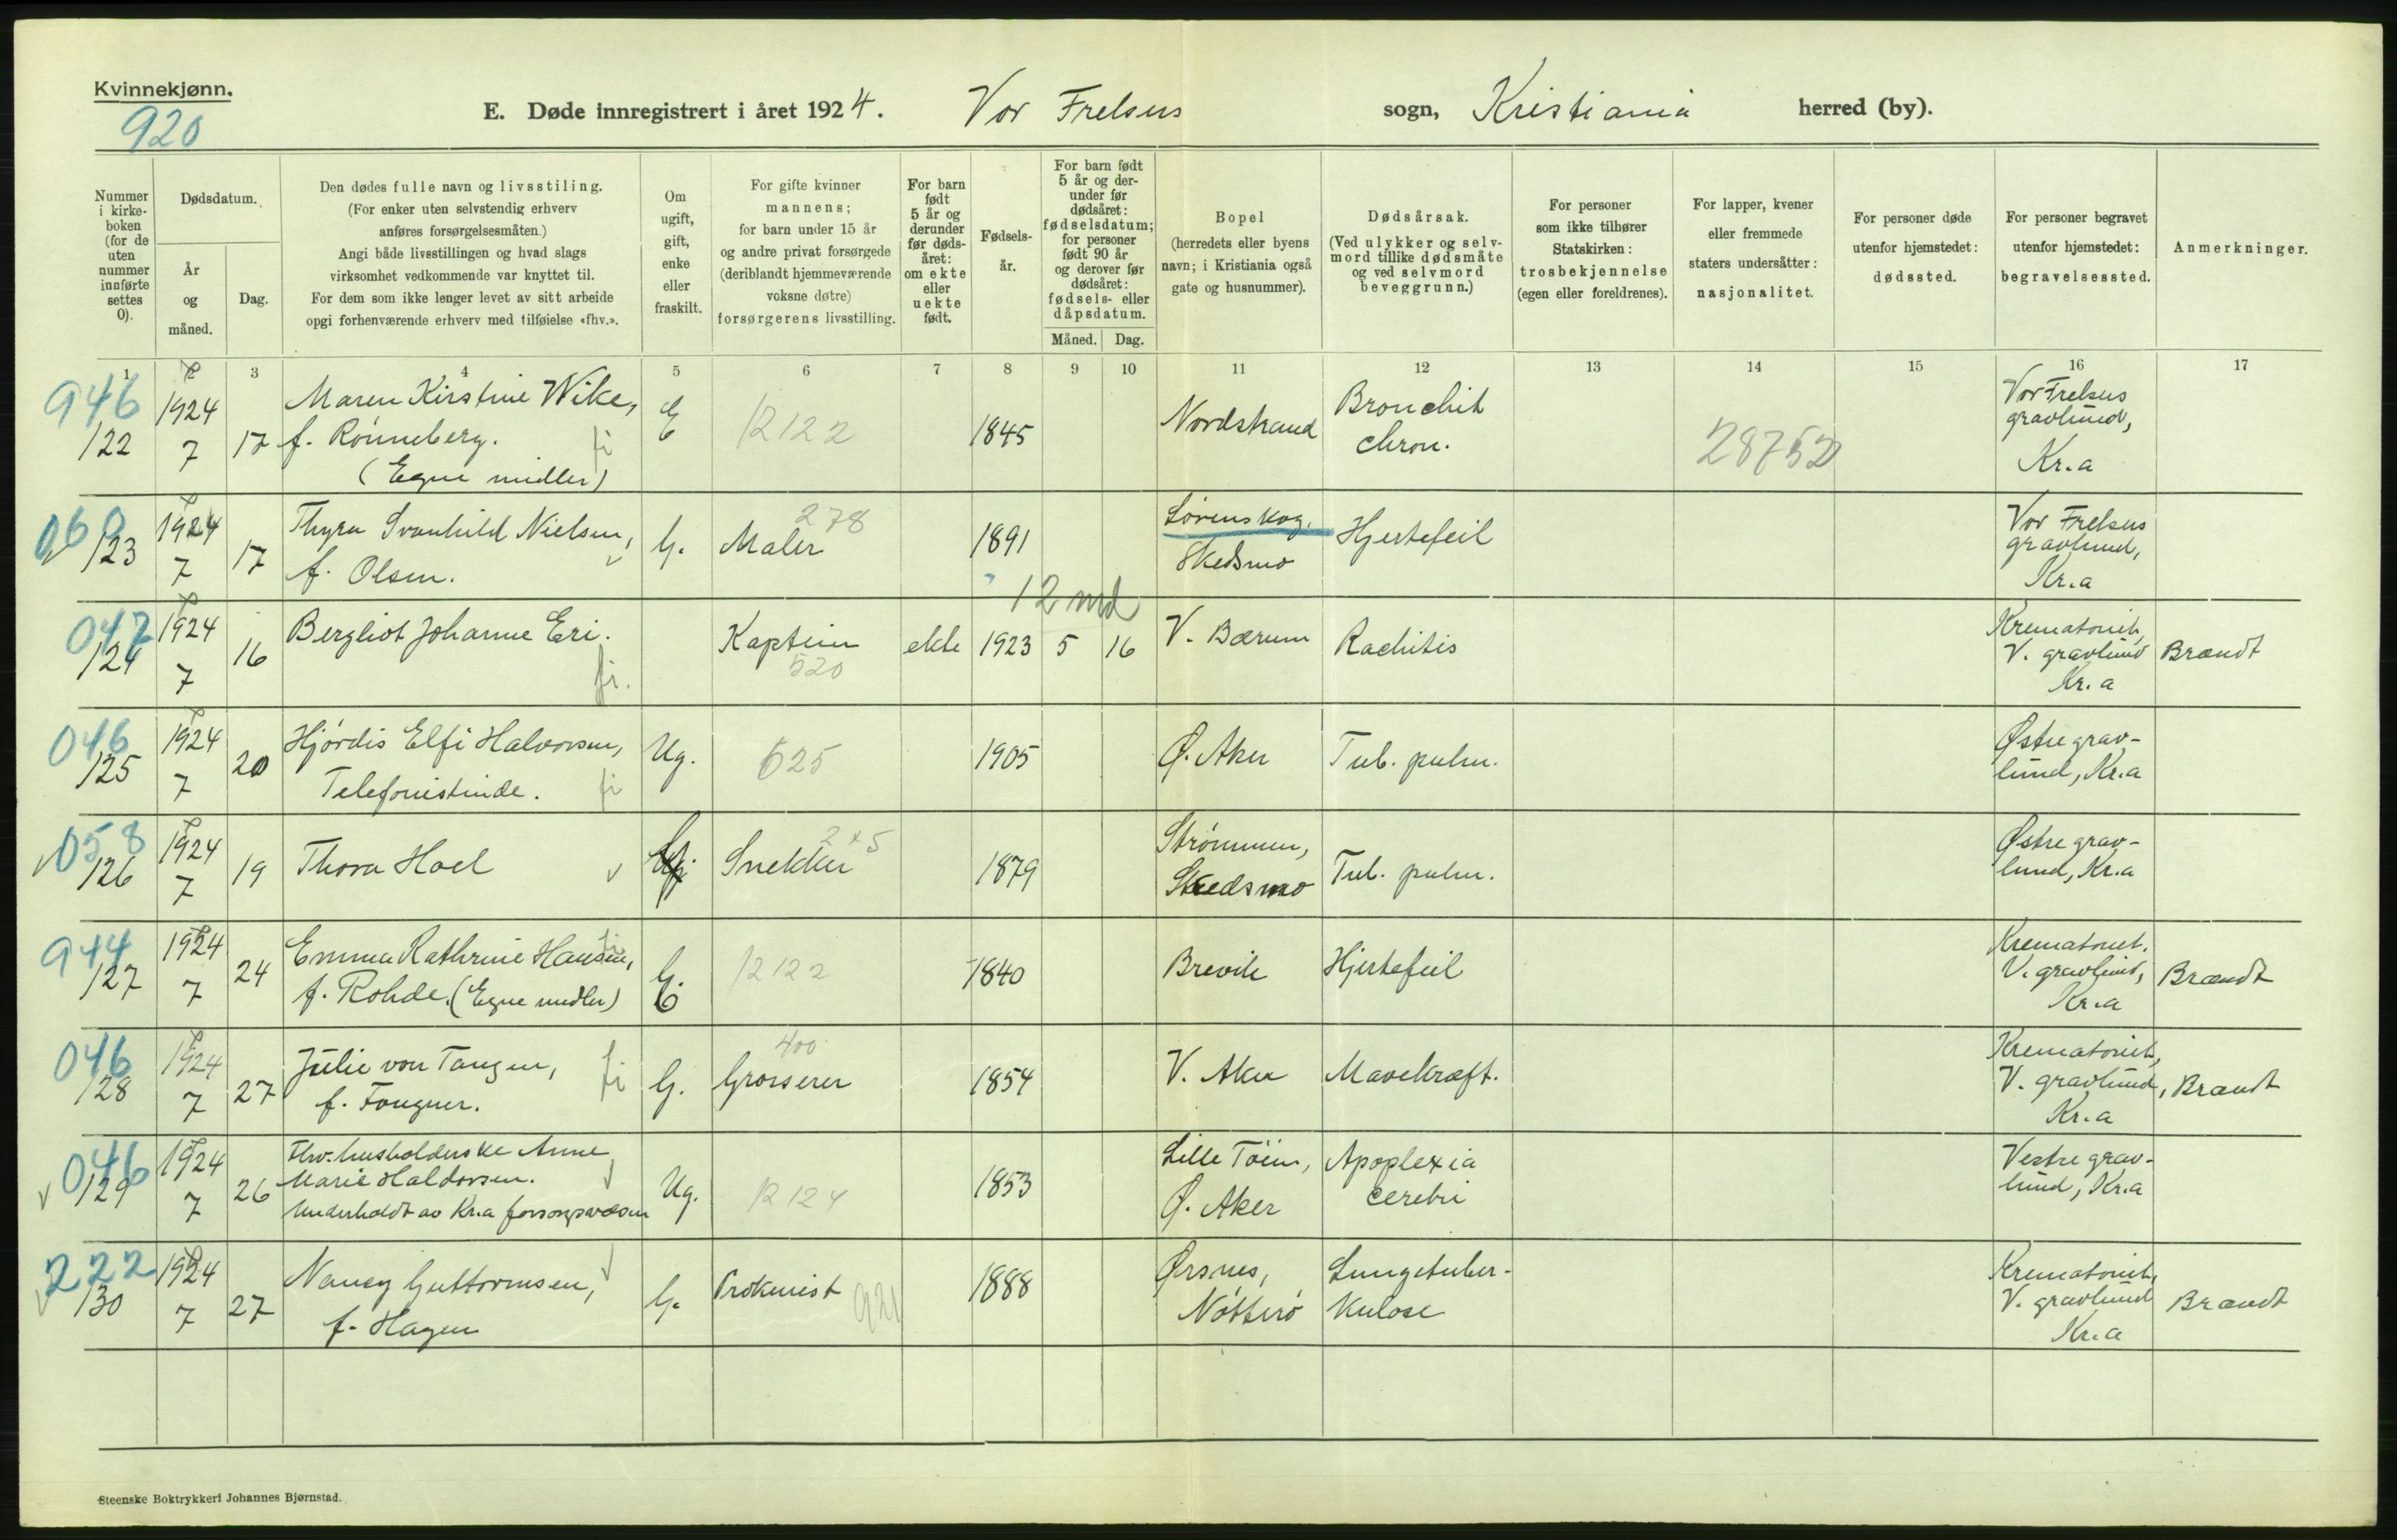 Kvinnekjønn.
920
E. Døde innregistrert i året 1924. Vor Frelsers sogn, Kristiania herred (by).
Nummer i kirkeboken (for de uten nummer innførte settes 0).
Dødsdatum.
År og måned.
Dag.
Den dødes fulle navn og livsstiling.
(For enker uten selvstendig erhverv
anføres forsørgelsesmåten.)
Angi både livsstillingen og hvad slags
virksomhet vedkommende var knyttet til.
For dem som ikke lenger levet av sitt arbeide
opgi forhenværende erhverv med tilføielse «fhv.».
Om ugift, gift, enke eller fraskilt.
For gifte kvinner
mannens;
for barn under 15 år
og andre privat forsørgede
(deriblandt hjemmeværende
voksne døtre)
forsørgerens livsstilling.
For barn født 5 år og derunder før dødsåret: om ekte eller uekte født.
Fødselsår.
For barn født 5 år og derunder før dødsåret: fødselsdatum; for personer født 90 år og derover før dødsåret: fødsels- eller dåpsdatum.
Måned. Dag.
Bopel
(herredets eller byens
navn; i Kristiania også
gate og husnummer).
Dødsårsak.
(Ved ulykker og selvmord tillike dødsmåte og ved selvmord beveggrunn.)
For personer
som ikke tilhører
Statskirken:
trosbekjennelse
(egen eller foreldrenes).
For lapper, kvener
eller fremmede
staters undersåtter:
nasjonalitet.
For personer døde
utenfor hjemstedet:
dødssted.
For personer begravet
utenfor hjemstedet:
begravelsessted.
Anmerkninger.
1 2 3 4 5 6 7 8 9 10 11 12 13 14 15 16 17
946
122 1924 7 17 Maren Kirstine Wike,
f. Rönneberg. fi
(Egne midler)
E 12122 1845 Nordstrand Bronchit
chron.
28752
Vor Frelsers
gravlund,
Kr.a
060
123 1924 7 17 Thyra Svanhild Nielsen,
f. Olsen.
G. Maler 278 1891 Lørenskog.
Skedsmo
Hjertefeil
Vor Frelsers
gravlund,
Kr.a
047
124 1924 7 16 Bergliot Johanne Eri.
fi.
Kaptein
520
ekte 1923 5 16 12 md
V. Bærum Rachitis
Krematoriet,
V. gravlund
Kr.a
Brændt
046
125 1924 7 20 Hjördis Elfi Halvorsen,
Telefonistinde. fi
Ug. 625 1905 Ø. Aker Tub. pulm.
Østre grav-
lund, Kr.a
058
126 1924 7 19 Thora Hoel
Snekker 245 1879 Strömmen,
Skedsmo
Tub. pulm.
Østre grav-
lund, Kr.a
944
127 1924 7 24 Emma Kathrine Hansen, fi
f. Rohde. (Egne midler)
12122 1840 Brevik Hjertefeil
Krematoriet.
V. gravlund,
Kr.a
Brændt
046
128 1924 7 27 Julie von Tangen, fi
f. Fougner.
G. Grosserer 400 1854 V. Aker Mavekræft.
Krematoriet,
V. gravlund,
Kr.a
Brændt
046
129 1924 7 26 Fhv. husholderske Anne
Marie Haldorsen.
Underholdt av Kr.a forsorgsvæsen
Ug. 12124 1853 Lille Töien,
Ø. Aker
Apoplexia
cerebri
Vestre grav-
lund, Kr.a
222
130 1924 7 27 Nancy Guttormsen,
f. Hagen
G. Prokurist 921 1888 Ørsnes,
Nötterö
Lungetuber-
kulose
Krematoriet,
V. gravlund
Kr.a
Brændt
Steenske Boktrykkeri Johannes Bjørnstad.